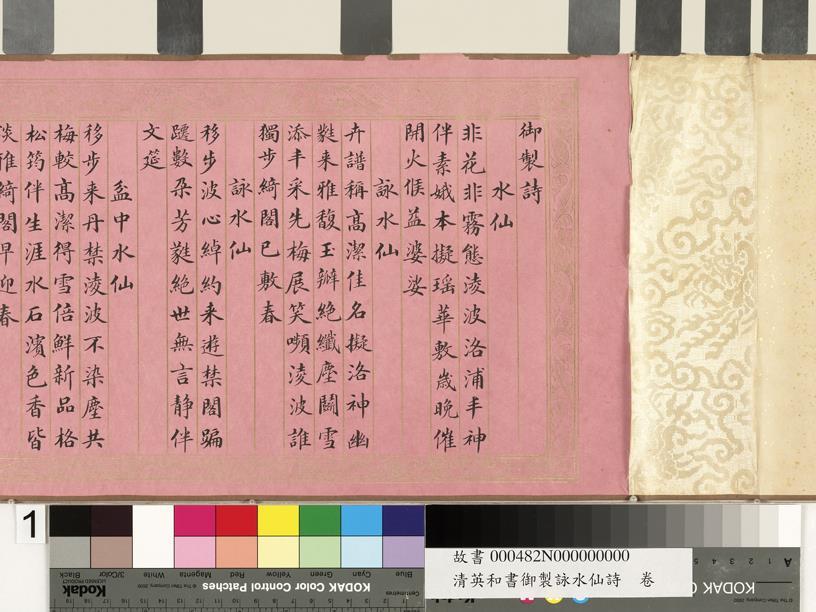 御製詩
水仙
非花非霧態淩波洛浦丰神
伴素娥本擬瑤華敷歲晚催
開火候益婆娑
詠水仙
卉譜稱高潔佳名擬洛神幽
蕤来雅馥玉瓣絕纖塵鬭雪
添丰采先梅展笑嚬淩波誰
獨步綺閣已敷春
詠水仙
移步波心綽約来遊禁閣蹁
躚數朶芳蕤絕世無言静伴
文筵
盆中水仙
移步来丹禁淩波不染塵共
梅較高潔得雪倍鮮新品格
松筠伴生涯水石濱色香皆
淡雅綺閣早迎春
1
Blue Cyan Green Yellow Red Magenta White 3/Color Black
KODAK Color Control Patches
Kodak
LICENSED PRODUCT
© The Tiffen Company, 2000
Centimetres
故書 000482N000000000
清英和書御製詠水仙詩 卷
KODAK
A 1 2 3 4 5